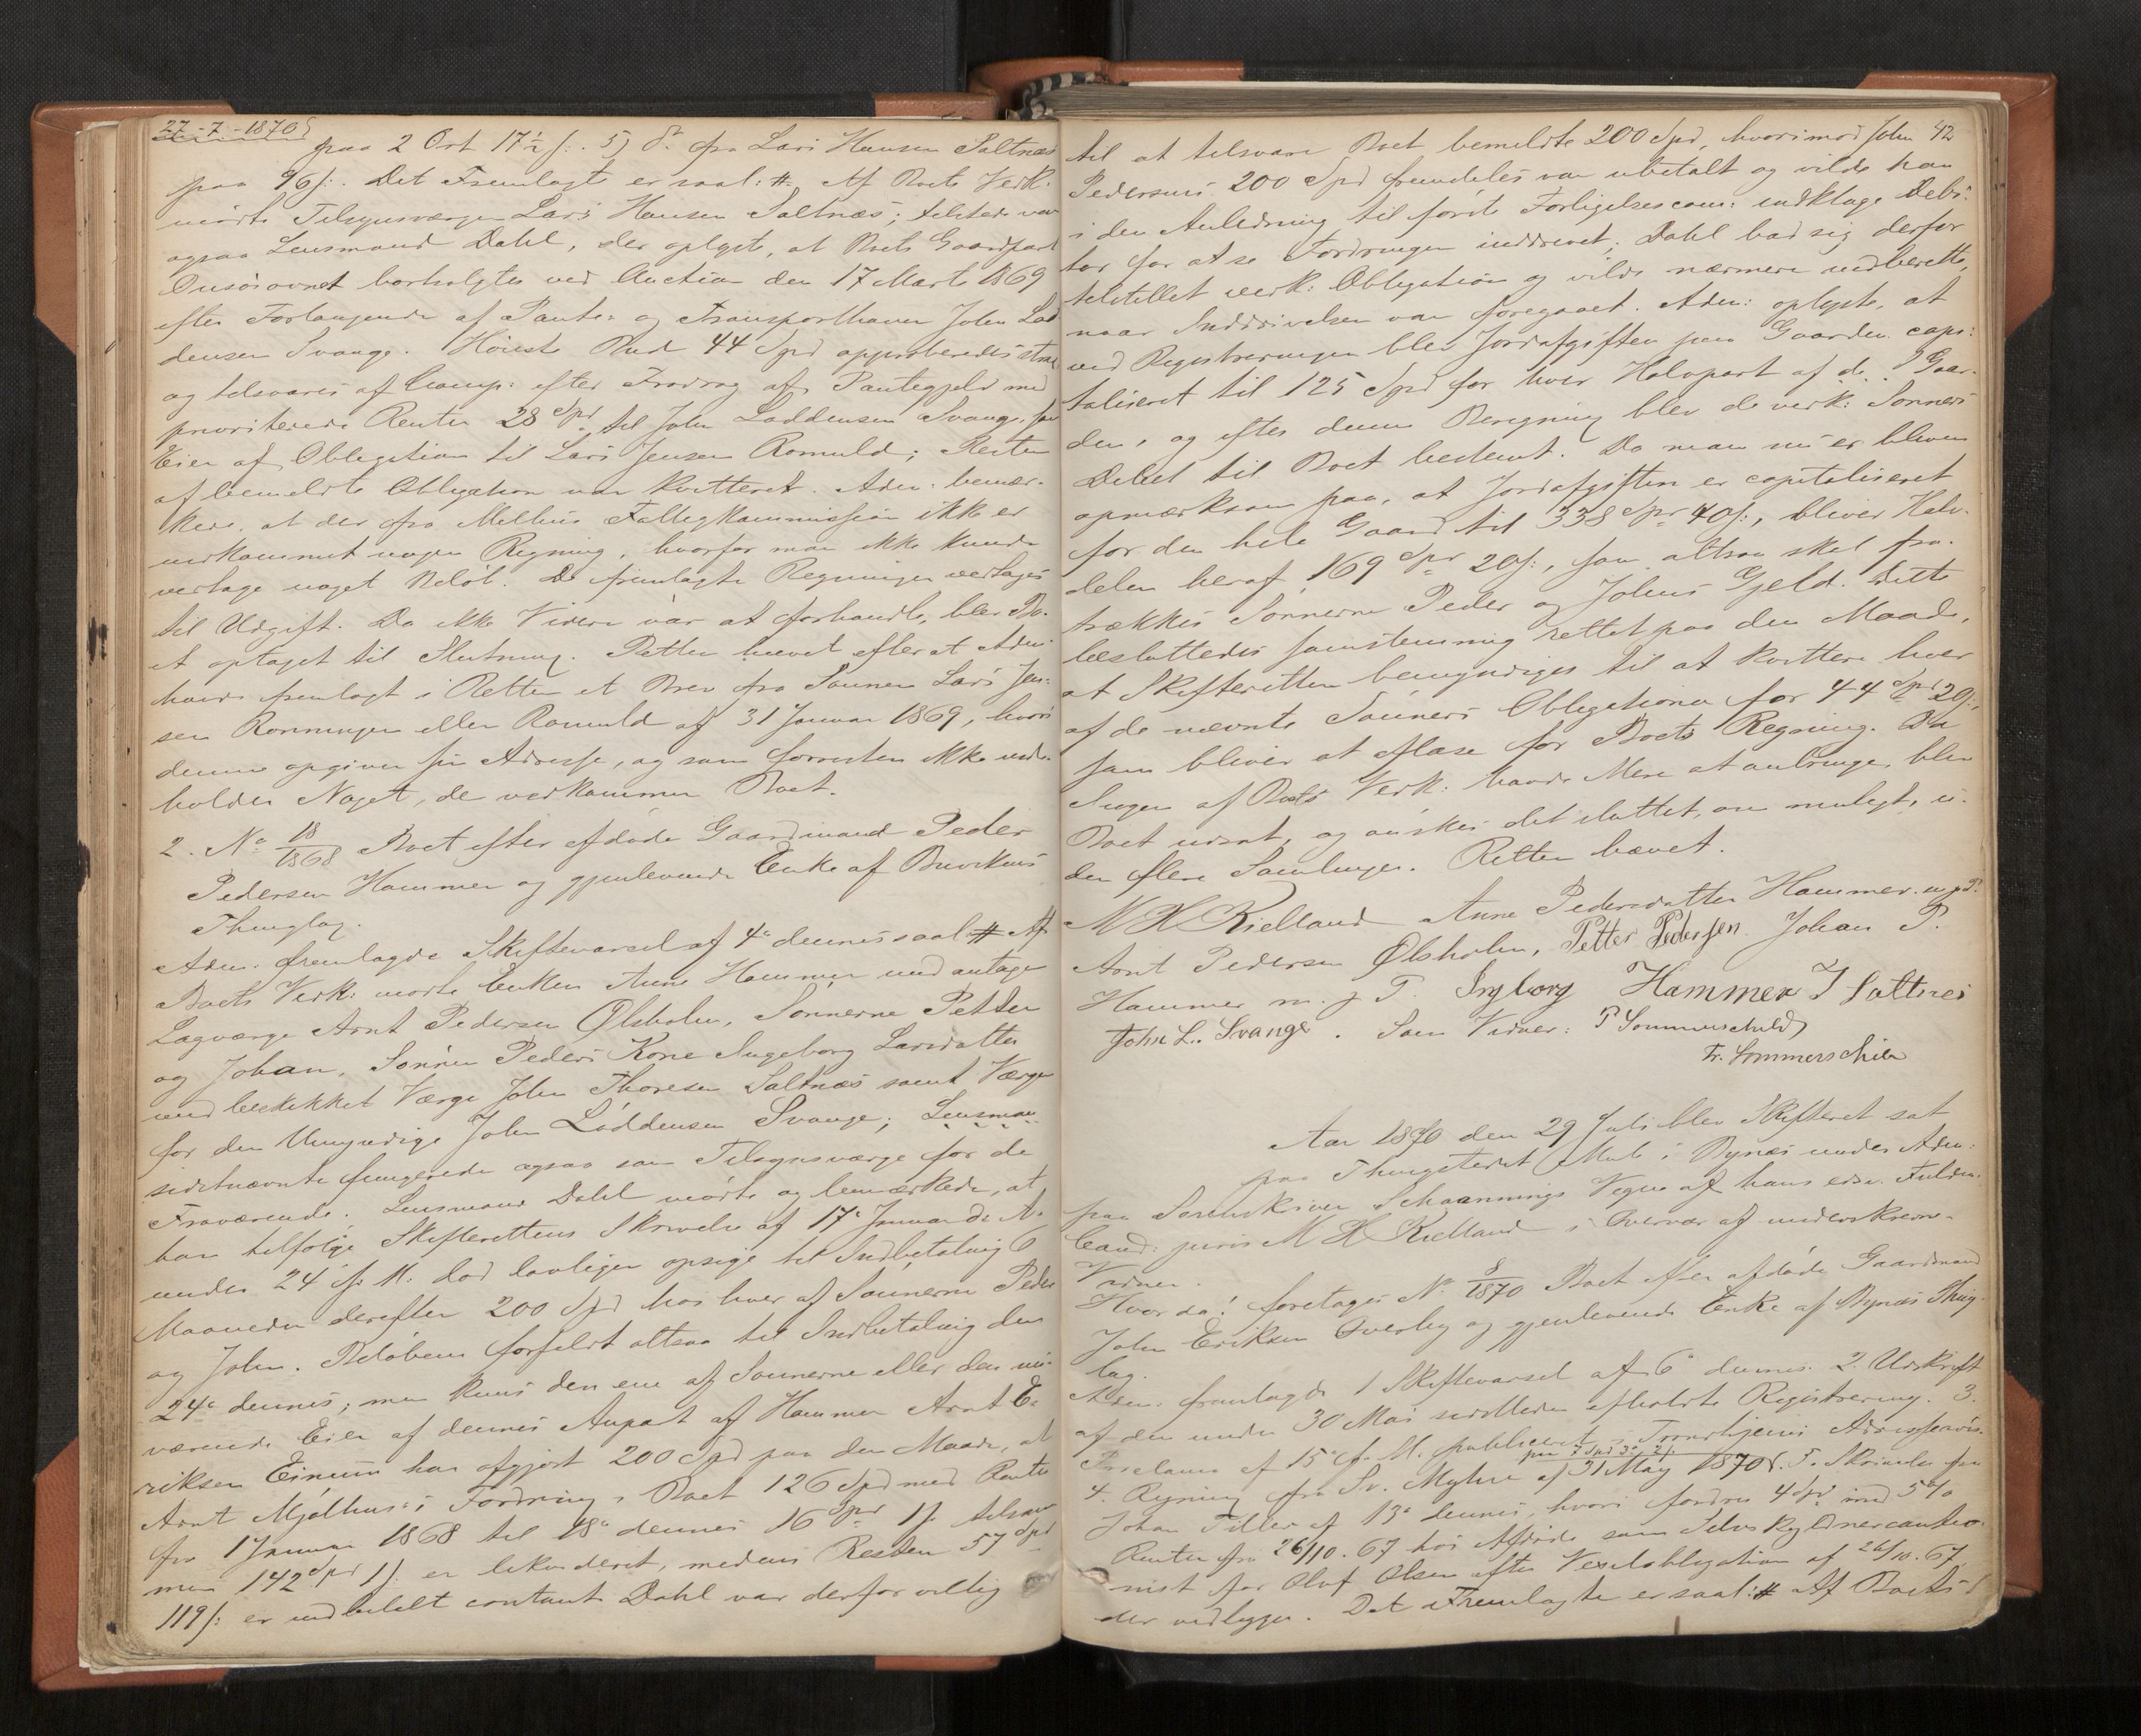 27-7-1870
paa 2 Ort 17½ s. 5) do fra Lars Hansen Saltnæs
paa 96 s. Det Fremlagte er saal: # Af Boets Vedk.
mødte Tilsynsværgen Lars Hansen Saltnæs; tilstede var
ogsaa Lensmand Dahl, der oplyste, at Boets Gaardpart
Onsøiavnet bortsolgtes ved Auction den 17 Marts 1869
efter Forlangende af Pante- og Transporthaver John Lod
densen Svange. Høieste Bud 44 Spd approberedes strax
og tilsvares af Comp: efter Fradrag af Pantegjeld med
prioriterede Renter 28 Spd til John Loddensen Svange som
Eier af Obligation til Lars Jensen Romuld; Resten
af bemeldte Obligation var kvitteret. Adm. bemær-
kede, at der fra Melhus Fattigkommission ikke er
indkommet nogen Regning, hvorfor man ikke kunde
vedtage noget Beløb. De fremlagte Regninger vedtages
til Udgift. Da ikke Videre var at forhandle, blev Bo-
et optaget til Slutning. Retten hævet efter at Adm.
havde fremlagt i Retten et Brev fra Sønnen Lars Jen-
sen Ronningen eller Romuld af 31 Januar 1869, hvori
denne opgiver sin Adresse, og som forresten ikke inde-
holder Noget, der vedkommer Boet.
2. No 18/1868 Boet efter afdøde Gaardmand Peder
Pedersen Hammer og gjenlevende Enke af Buvikens
Thinglag.
Adm. fremlagde Skiftevarsel af 4de dennes saal # Af
Boets Vedk: mødte Enken Anne Hammer med antagen
Lagværge Arnt Pedersen Ølsholm, Sønnerne Petter
og Johan, Sønnen Peders Kone Ingeborg Larsdatter
med beskikket Værge John Thoresen Saltnæs samt Værgen
for den Umyndige John Loddensen Svange; Lensman
sidstnævnte fungerede ogsaa som Tilsynsværge for de
Fraværende. Lensmand Dahl mødte og bemærkede, at
han tilfølge Skifterettens Skrivelse af 17de Januar d. A.
under 24 s. M. lod lovligen opsige til Indbetaling 6
Maaneder derefter 200 Spd hos hver af Sønnerne Peder
og John. Beløbene forfaldt altsaa til Indbetaling den
24de dennes; men kuns den ene af Sønnerne eller den nu-
værende Eier af dennes Anpart af Hammer Arnt E-
riksen Einum har afgjort 200 Spd paa den Maade, at
Arnt Mjølhus's Fordring i Boet 126 Spd med Renter
fra 1 Januar 1868 til 18de dennes 16 Spd 1 s. tilsam
men 142 Spd 1 s. er likvideret, medens Resten 57 Spd
119 s. er indbetalt contant. Dahl var derfor villig
42
til at tilsvare Boet bemeldte 200 Spd, hvorimod John
Pedersens 200 Spd fremdeles var ubetalt og vilde han
i den Anledning til første Forligelsescom: indklage Debi-
tor for at se Fordringen inddrevet. Dahl bad sig derfor
tilstillet vedk: Obligation og vilde nærmere indberette,
naar Inddrivelsen var foregaaet. Adm: oplyste, at
ved Registreringen blev Jordafgiften paa Gaarden capi-
taliseret til 125 Spd for hver Halvpart af de 2 Gaar-
den, og efter denne Beregning blev de vedk: Sønners
Debet til Boet bestemt. Da man nu er bleven
opmærksom paa, at Jordafgiften er capitaliseret
for den hele Gaard til 338 Spd 40 s., bliver Halv-
delen heraf 169 Spd 20 s., som altsaa skal fra-
trækkes Sønnerne Peder og Johns Gjeld. Dette
besluttedes samstemmig rettet paa den Maade,
at Skifteretten bemyndiges til at kvittere hver
af de nævnte Sønners Obligationer for 44 Spd 20 s.,
som bliver at aflæse for Boets Regning. Da
Ingen af Boets Vedk: havde Mere at anbringe, blev
Boet udsat, og ønskes det sluttet, om muligt, u-
den flere Samlinger. Retten hævet.
M H Kielland Anne Pedersdatter Hammer m. p. P.
Arnt Pedersen Ølsholm, Petter Pedersen Johan P.
Hammer m. p. P. Ingborg Hammer J Saltnes
John L. Svange. Som Vidner: P Sommerschild
Fr. Sommerschield
Aar 1870 den 29 Juli blev Skifteret sat
paa Thingstedet Mule i Bynæs under Adm:
paa Sorenskriver Schaannings Vegne af hans edsv. Fuldm.
Cand: juris M H Kielland i Overvær af underskrevne
Vidner.
Hvor da! foretages No 8/1870 Boet efter afdøde Gaardmand
John Eriksen Overby og gjenlevende Enke af Bynæs Thing-
lag.
Adm. fremlagde 1 Skiftevarsel af 6te dennes. 2. Udskrift
af den under 30 Mai sidstleden afholdte Registrering. 3.
Proclama af 15de f. M. publiceret i Trondhjems Adresseavis.
4. Regning fra Sv. Myhre af 31 May 1870 paa 7 Spd 3 2 s. 5. Skrivelse fra
Johan Tiller af 13de dennes, hvori fordres 4 Spd med 5%
Renter fra 26/10.67 hos Afdøde som Selvskyldnercautio-
nist for Oluf Olsen efter Vexelobligation af 26/10.67,
der vedligger. Det Fremlagte er saal: # Af Boets